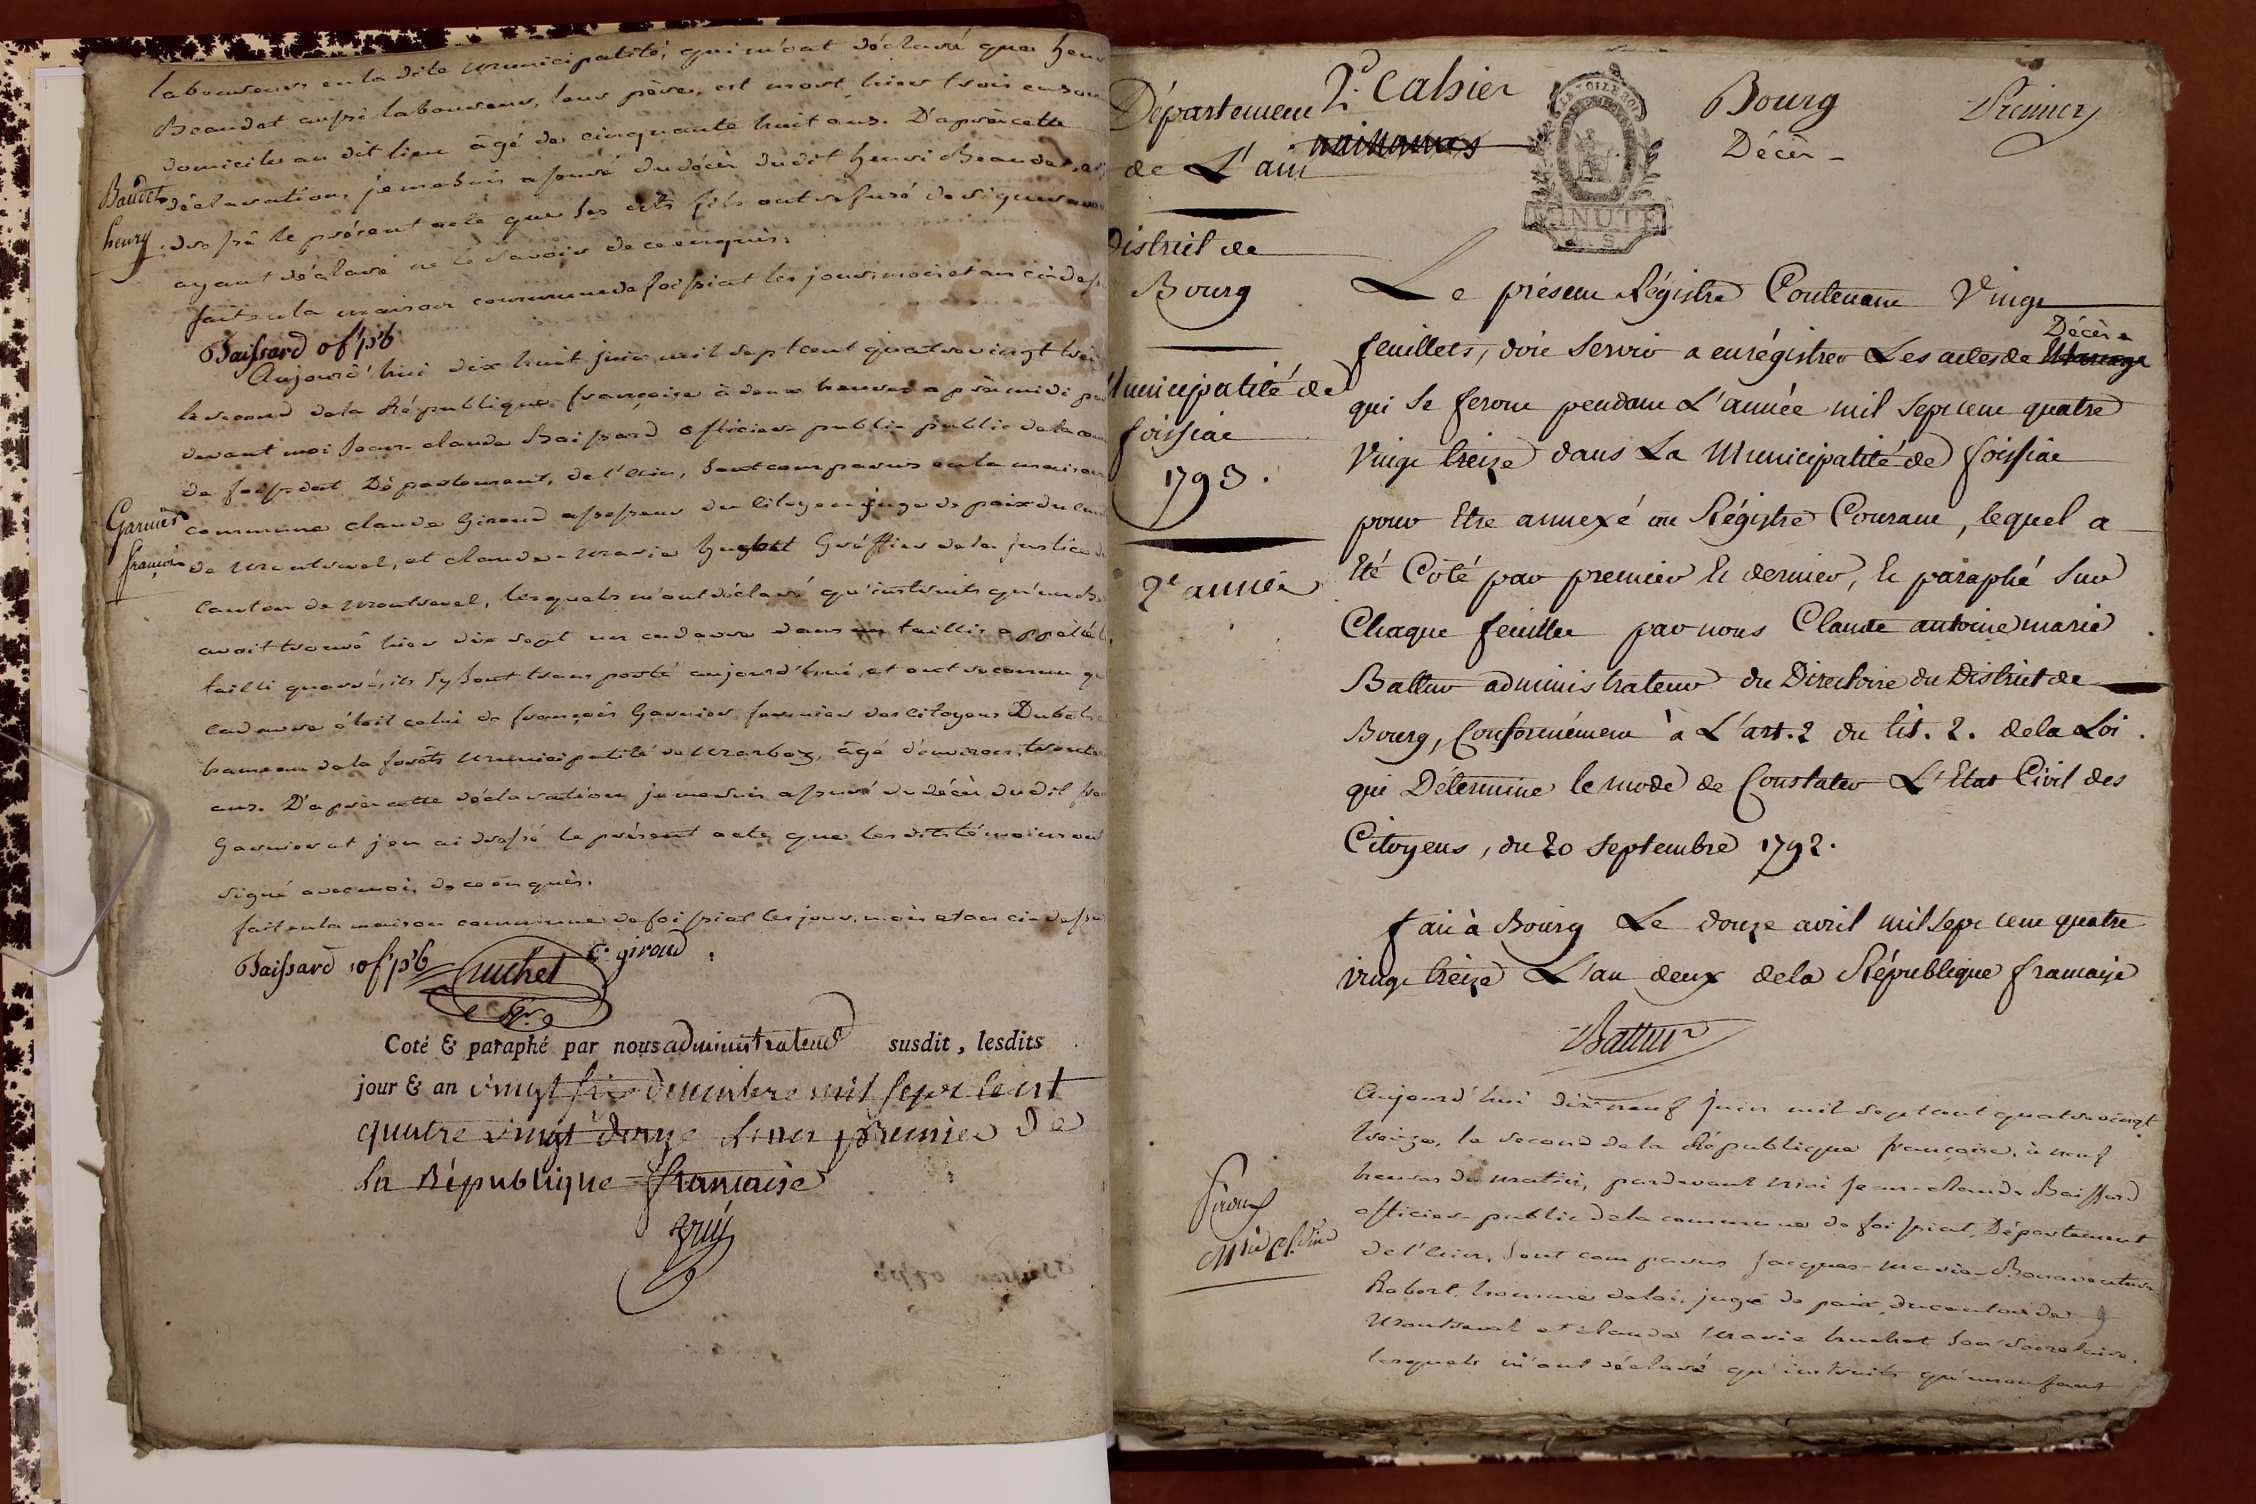 laboureurs en la dite municipalité, qui m'ont déclaré que henri
Beaudet aussi laboureur, leur père, est mort hier trois
domicile au dit lieu âgé de cinquante huit ans. D'après cette
Baudet
henry
déclaration, je me suis assuré du décès dudit henri Beaudet, et
dressé le présent acte que les dits fils ont refusé de signer
ayant déclaré ne le savoir de ce enquis.
fait en la maison commune de foissiat les jour, mois et an ci dess
Baissard of. pb
Aujourd'hui dix huit juin mil sept cent quatre vingt
le second de la République françoise à deux heures après midi
devant moi Jean claude Baissard officier public public de la
de foissiat Département de l'Ain, sont comparus en la maison
Garnier
françois
commune claude Giroud assesseur du citoyen juge de paix du
de Montrevel, et claude-Marie huchet Gréffier de la justice
canton de Montrevel, lesquels m'ont déclaré qu'instruits qu'on
avoit trouvé hier dix sept un cadavre dans un taillis appellé
tailli quarré, ils s'y sont transporté aujourd'hui, et ont reconnu
cadavre étoit celui de françois Garnier fermier des citoyens
hameau de la forêts municipalité de Marboz, âgé d'environ trente
ans. D'après cette déclaration je me suis assuré du décès dudit
Garnier et j'en ai dressé le présent acte que les dits témoins ont
signé avec moi, de ce enquis.
fait en la maison commune de foissiat les jour, mois et an ci-dess
Baissard of. pb huchet C. giroud
Gr.
Coté & paraphé par nous administrateur susdit, lesdits
jour & an vingt six decembre mil sept cent
quatre vingt douze L'an premier de
La République française
Département
de L'ain
2e. Cahier
naissances
LE TOIZE SOL
MINUTE
Bourg
Décès
Premier
District de
Bourg
Municipalité de
foissiac
1793.
2e année
Le présent Régistre Contenant Vingt
feuillets, doit Servir a enrégistrer Les actes de Mariage Décès
qui Se feront pendant L'année mil Sept cent quatre
Vingt treize dans La Municipalité de foissiac
pour Etre annexé au Régistre Courant, lequel a
Eté Côté par premier Et dernier, Et paraphé Sur
Chaque feuillet par nous Claude antoine marie
Battur administrateur du Directoire du District de
Bourg, Conformément à L'art. 2 du tit. 2. de la Loi
qui Détermine le mode de Constater L'Etat Civil des
Citoyens, du 20 Septembre 1792.
fait à Bourg Le douze avril mil Sept cent quatre
Vingt treize L'an deux de la République française
Battur
Aujourd'hui dix neuf juin mil sept cent quatre vingt
treize, le second de la République françoise, à neuf
heures du matin, pardevant moi Jean-claude Baissard
officier public de la commune de foissiat, Département
de l'Ain, sont comparus Jacques-Marie-Bonaventure
Robert, homme de loi, juge de paix du canton de
Montrevel et claude Marie huchet son secretaire,
lesquels m'ont déclaré qu'instruits qu'un enfant